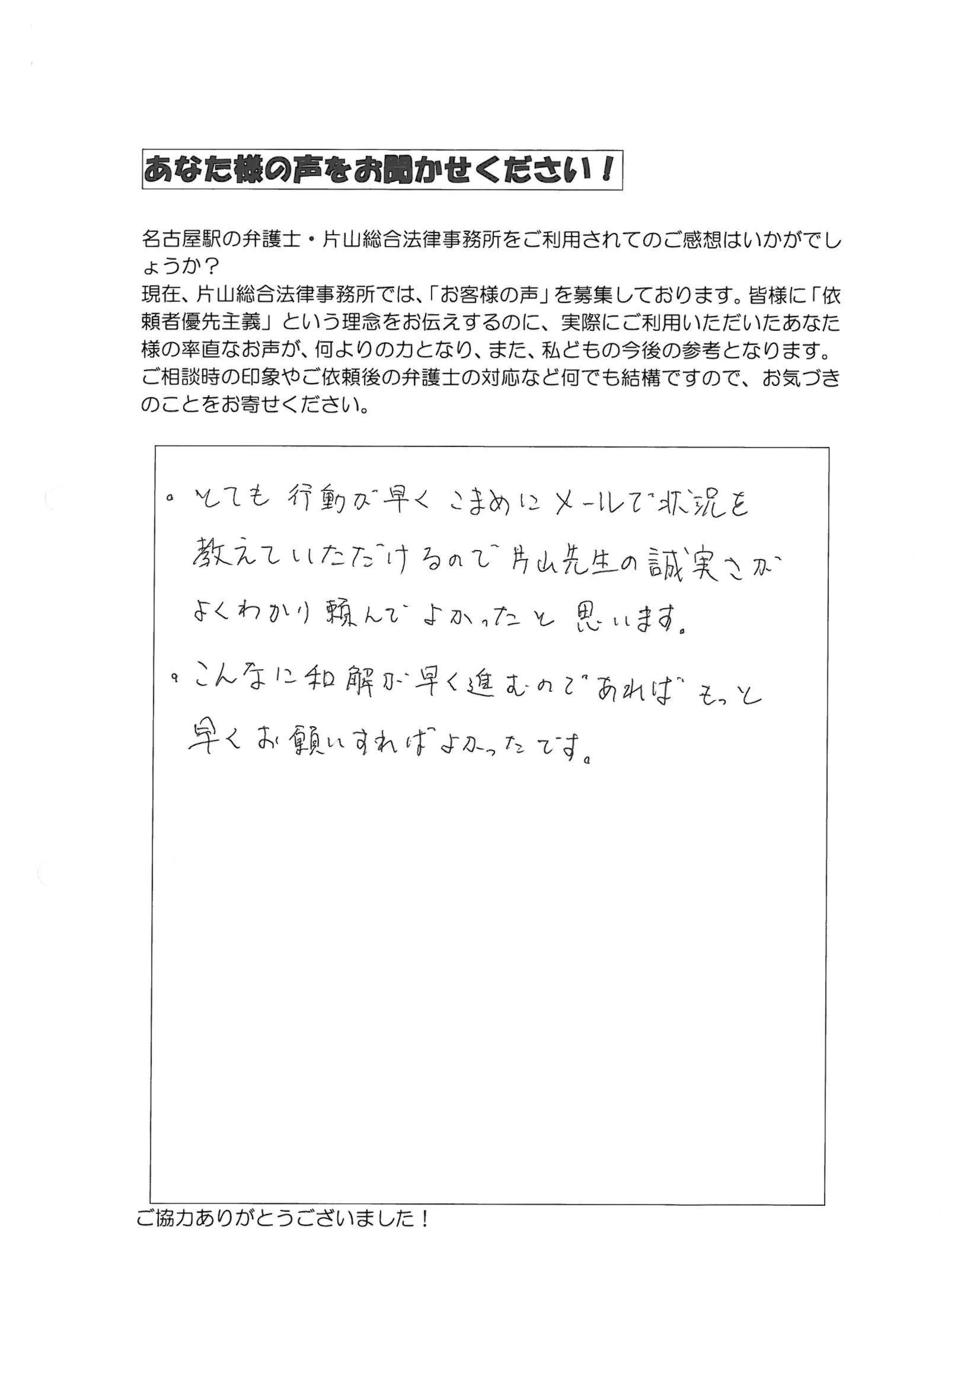 あなた様の声をお聞かせください！
名古屋駅の弁護士・片山総合法律事務所をご利用されてのご感想はいかがでし
ょうか？
現在、片山総合法律事務所では、「お客様の声」を募集しております。皆様に「依
頼者優先主義」という理念をお伝えするのに、実際にご利用いただいたあなた
様の率直なお声が、何よりの力となり、また、私どもの今後の参考となります。
ご相談時の印象やご依頼後の弁護士の対応など何でも結構ですので、お気づき
のことをお寄せください。
。とても行動が早くこまめにメールで状況を
教えていただけるので片山先生の誠実さが
よくわかり頼んでよかったと思います。
。こんなに和解が早く進むのであればもっと
早くお願いすればよかったです。
ご協力ありがとうございました！